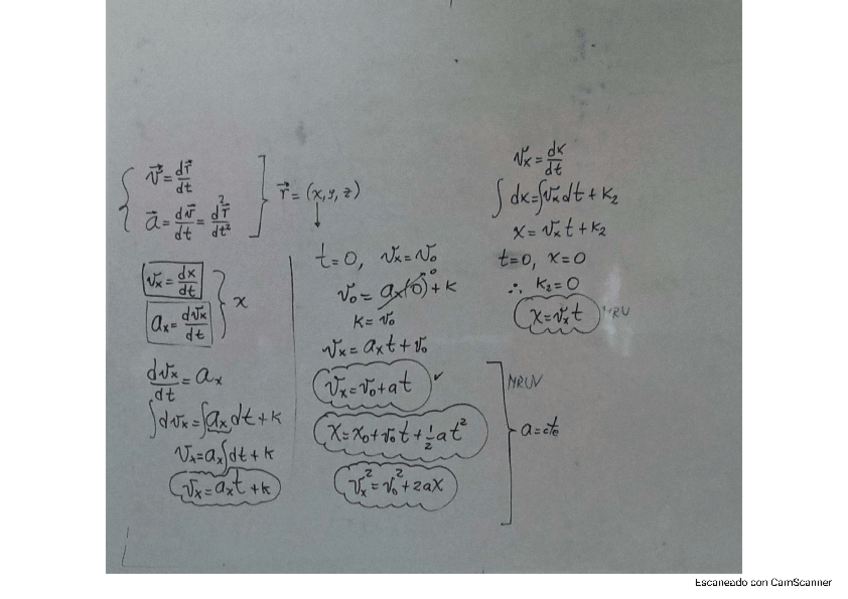 v⃗ = dr⃗/dt
a⃗ = dv⃗/dt = d²r⃗/dt²
r⃗ = (x, y, z)
vx = dx/dt
ax = dvx/dt
x
dvx/dt = ax
∫dvx = ∫ax dt + k
vx = ax∫dt + k
vx = axt + k
t = 0, vx = v₀
v₀ = ax(0) + k
0
k = v₀
vx = axt + v₀
vx = v₀ + at ✓
x = x₀ + v₀t + ½at²
vx² = v₀² + 2ax
MRUV
a = cte
vx = dx/dt
∫dx = ∫vx dt + k₂
x = vxt + k₂
t = 0, x = 0
∴ k₂ = 0
x = vxt MRU
Escaneado con CamScanner